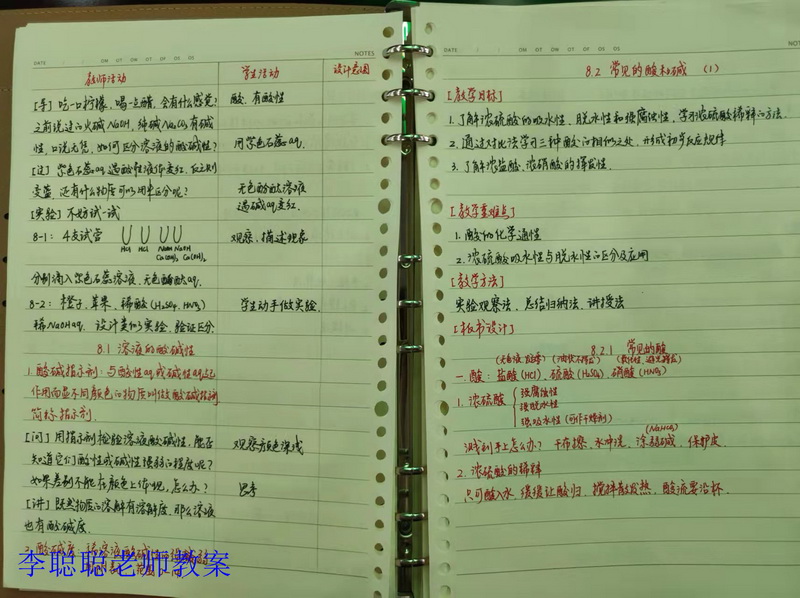 DATE
NOTES
教师活动 学生活动 设计意图
[导] 吃一口柠檬，喝一点醋，会有什么感觉? 酸，有酸性
之前说过的火碱NaOH，纯碱Na₂CO₃有碱
性，口说无凭，如何区分溶液的酸碱性? 用紫色石蕊aq.
[过] 紫色石蕊aq遇酸性液体变红，反之则
变蓝，还有什么物质可以用来区分呢? 无色酚酞溶液
遇碱aq变红.
[实验] 不妨试一试
8-1: 4支试管 观察，描述现象
HCl HCl NaOH NaOH
Ca(OH)₂ Ca(OH)₂
分别滴入紫色石蕊溶液，无色酚酞aq.
8-2: 橙子，苹果，稀酸(H₂SO₄, HNO₃) 学生动手做实验.
稀NaOH aq. 设计类似实验，验证区分.
8.1 溶液的酸碱性
1. 酸碱指示剂: 与酸性aq或碱性aq起
作用而显不同颜色的物质叫做酸碱指示剂
简称指示剂.
[问] 用指示剂检验溶液酸碱性，能否 观察颜色深浅
知道它们酸性或碱性强弱的程度呢?
如果差别不能在颜色上体现，怎么办? 思考
[讲] 既然物质的溶解有溶解度，那么溶液
也有酸碱度.
2. 酸碱度:
李聪聪老师教案
DATE
8.2 常见的酸和碱 (1)
[教学目标]
1. 了解浓硫酸的吸水性，脱水性和强腐蚀性，学习浓硫酸稀释的方法.
2. 通过对比法学习三种酸的相似之处，形成初步反应规律
3. 了解浓盐酸、浓硝酸的挥发性.
[教学重难点]
1. 酸的化学通性
2. 浓硫酸吸水性与脱水性的区分及应用
[教学方法]
实验观察法，总结归纳法，讲授法
[板书设计]
8.2.1 常见的酸
一. 酸: 盐酸(HCl)，硫酸(H₂SO₄)，硝酸(HNO₃)
1. 浓硫酸 强腐蚀性
强脱水性
强吸水性 (可作干燥剂)
(NaHCO₃)
溅到手上怎么办? 干布擦，水冲洗，涂弱碱，保护皮
2. 浓硫酸的稀释
只可酸入水，缓缓让酸归，搅拌散发热，酸流要沿杯.